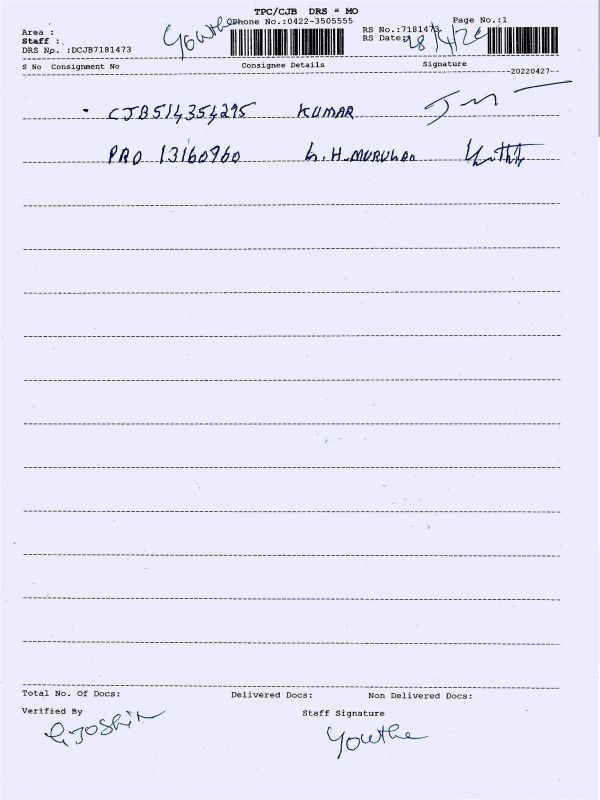 TPC/CJB DRS = MO
Area : Youthe Phone No.:0422-3505555 Page No.:1
Staff : RS No.:7181473
DRS No. :DCJB7181473 RS Date: 28/4/22
S No Consignment No Consignee Details Signature
--20220427--
CJB514354295 KUMAR
PRO 13160960 H-MURUGAN
Total No. Of Docs: Delivered Docs: Non Delivered Docs:
Verified By Staff Signature
Youthe